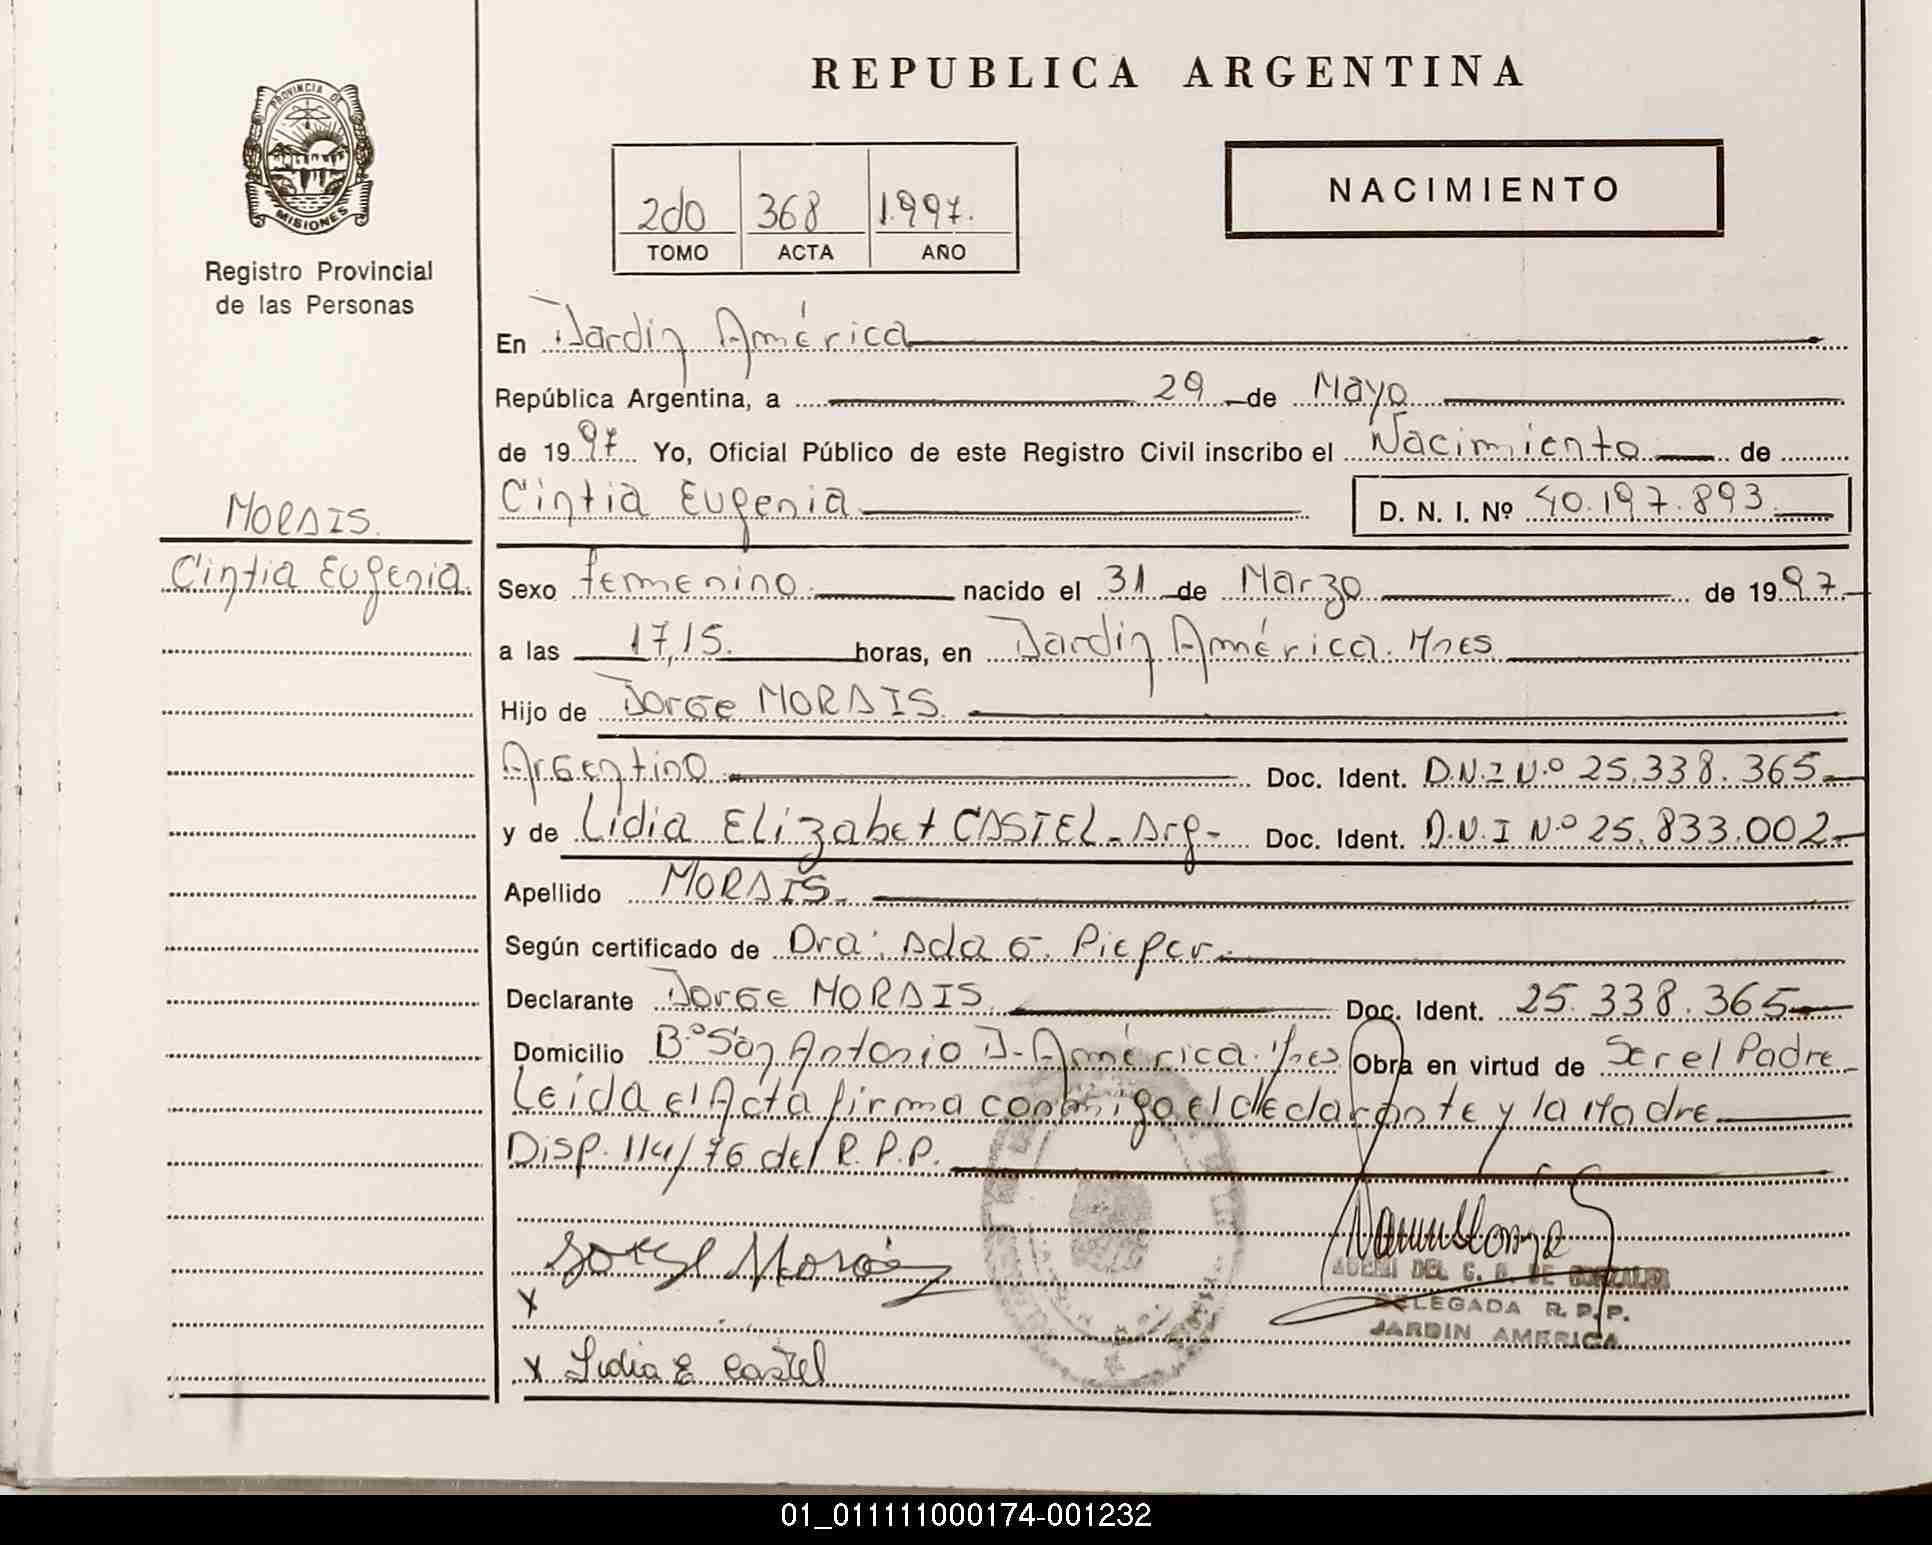 PROVINCIA DE
MISIONES
Registro Provincial
de las Personas
MORAIS.
Cintia Eugenia.
REPUBLICA ARGENTINA
2do 368 1.997.
TOMO ACTA AÑO
NACIMIENTO
En Jardín América
República Argentina, a 29 de Mayo
de 1997 Yo, Oficial Público de este Registro Civil inscribo el Nacimiento de
Cintia Eugenia D. N. I. Nº 40.197.893
Sexo femenino. nacido el 31 de Marzo de 1997
a las 17,15. horas, en Jardín América. Mnes
Hijo de Jorge MORAIS.
Argentino Doc. Ident. D.N.I N.º 25.338.365
y de Lidia Elizabet CASTEL - Arg- Doc. Ident. D.N.I N.º 25.833.002
Apellido MORAIS.
Según certificado de Dra: Ada G. Pieper.
Declarante Jorge MORAIS. Doc. Ident. 25.338.365
Domicilio Bº San Antonio J- América. Mnes Obra en virtud de Ser el Padre
Leida el Acta firma conmigo el declarante y la Madre
Disp. 114/76 del R.P.P.
Jorge Morais
X
X Lidia E Castel
DEL C. G. DE GONZALEZ
DELEGADA R.P.P.
JARDIN AMERICA
01_011111000174-001232